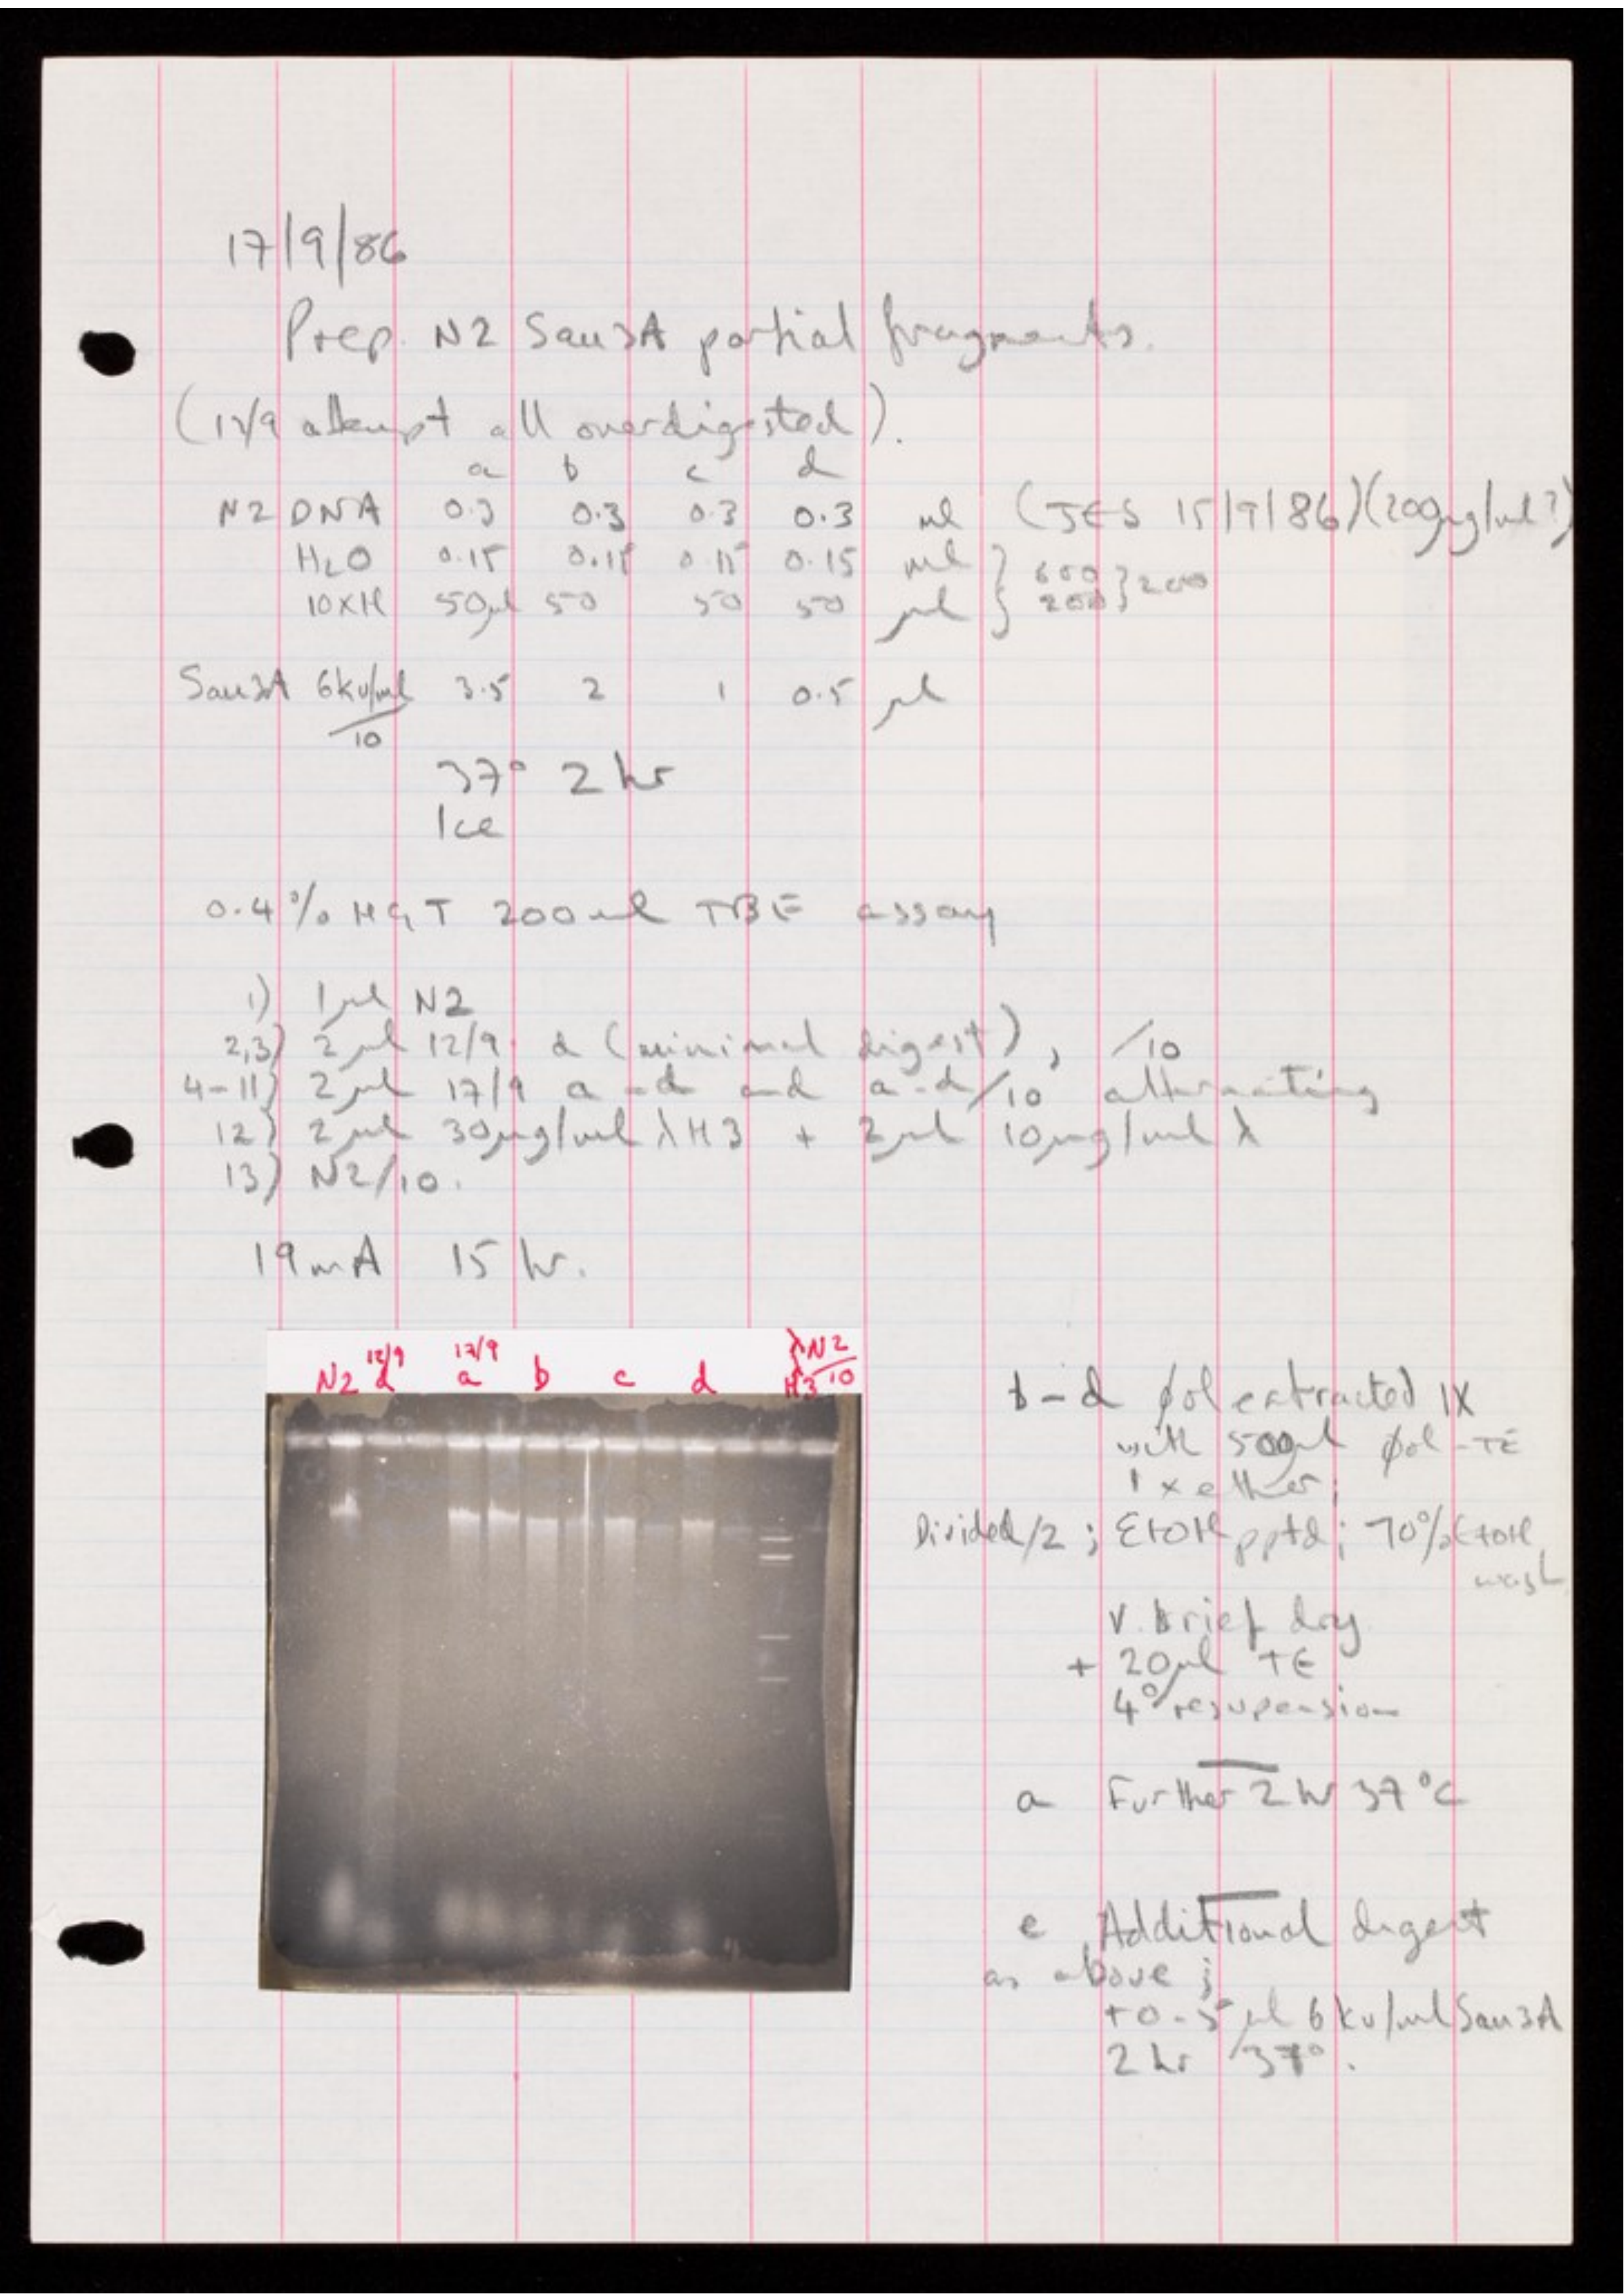 17/9/86
Prep. N2 Sau3A partial fragments.
(12/9 attempt all overdigested).
a b c d
N2 DNA 0.3 0.3 0.3 0.3 ml (JES 15/9/86)(200µg/ml?)
H2O 0.15 0.15 0.15 0.15 ml } 600 } 200
10XH 50µl 50 50 50 µl } 200
Sau3A 6ku/ml/10 3.5 2 1 0.5 µl
37° 2 hr
Ice
0.4% HGT 200ml TBE assay
1) 1µl N2
2,3) 2µl 12/9 d (minimal digest), /10
4-11) 2µl 17/9 a-d and a-d/10 alternating
12) 2µl 30µg/ml λH3 + 2µl 10µg/ml λ
13) N2/10.
19mA 15 hr.
N2 12/9 d 17/9 a b c d λ H3 N2/10
b-d øol extracted 1X
with 500µl øol-TE
1 x ether;
Divided/2; EtOH pptd; 70% EtOH
wash
v. brief dry
+ 20µl TE
4° resupension
a Further 2 hr 37°C
e Additional digest
as above;
+0.5µl 6ku/ml Sau3A
2 hr 37°.